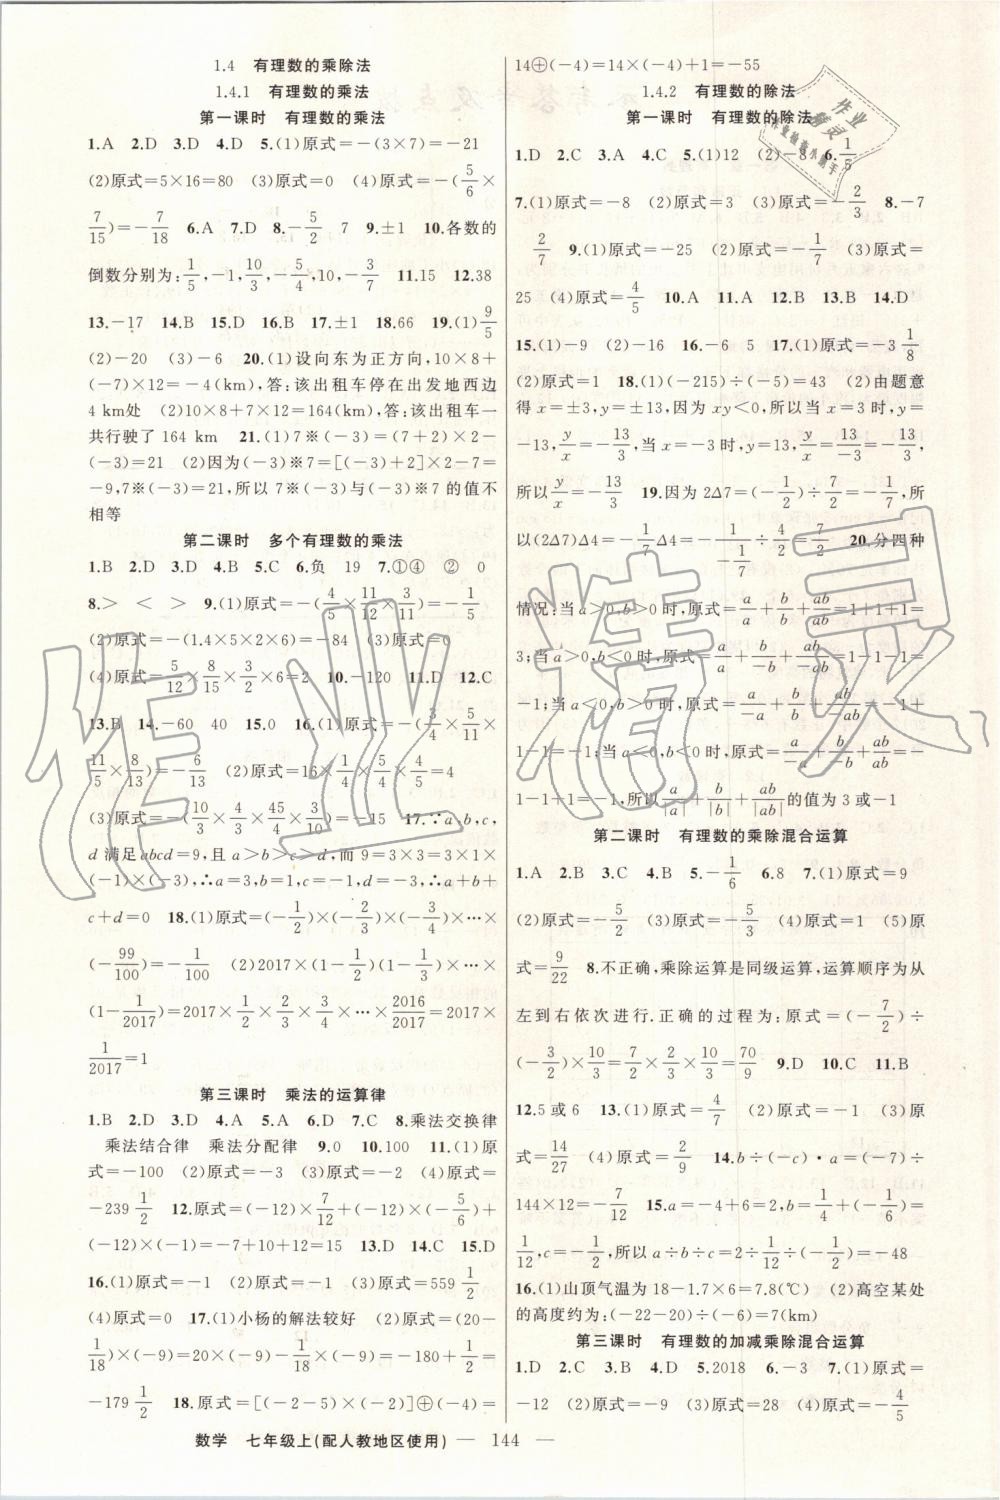 1.4 有理数的乘除法
1.4.1 有理数的乘法
第一课时 有理数的乘法
1.A 2.D 3.D 4.D 5.(1)原式=-(3×7)=-21
(2)原式=5×16=80 (3)原式=0 (4)原式=-(5/6×
7/15)=-7/18 6.A 7.D 8.-5/2 7 9.±1 10.各数的
倒数分别为:1/5,-1,10/3,-5/4,10,-3/7 11.15 12.38
13.-17 14.B 15.D 16.B 17.±1 18.66 19.(1)9/5
(2)-20 (3)-6 20.(1)设向东为正方向,10×8+
(-7)×12=-4(km),答:该出租车停在出发地西边
4 km处 (2)10×8+7×12=164(km),答:该出租车一
共行驶了 164 km 21.(1)7※(-3)=(7+2)×2-
(-3)=21 (2)因为(-3)※7=[(-3)+2]×2-7=
-9,7※(-3)=21,所以 7※(-3)与(-3)※7 的值不
相等
第二课时 多个有理数的乘法
1.B 2.D 3.D 4.B 5.C 6.负 19 7.①④ ② 0
8.> < > 9.(1)原式=-(4/5×11/12×3/11)=-1/5
(2)原式=-(1.4×5×2×6)=-84 (3)原式=0
(4)原式=5/12×8/15×3/2×6=2 10.-120 11.D 12.C
13.B 14.-60 40 15.0 16.(1)原式=-(3/4×5/11×
11/5×8/13)=-6/13 (2)原式=16×1/4×5/4×4/5=4
(3)原式=-(10/3×4/3×45/4×3/10)=-15 17.∵a,b,c,
d 满足abcd=9,且 a>b>c>d,而 9=3×3=3×1×
(-1)×(-3),∴a=3,b=1,c=-1,d=-3,∴a+b+
c+d=0 18.(1)原式=(-1/2)×(-2/3)×(-3/4)×…×
(-99/100)=-1/100 (2)2017×(1-1/2)(1-1/3)×…×
(1-1/2017)=2017×1/2×2/3×3/4×…×2016/2017=2017×
1/2017=1
第三课时 乘法的运算律
1.B 2.D 3.D 4.A 5.A 6.D 7.C 8.乘法交换律
乘法结合律 乘法分配律 9.0 10.100 11.(1)原
式=-100 (2)原式=-3 (3)原式=-2 (4)原式=
-239 1/2 12.原式=(-12)×7/12+(-12)×(-5/6)+
(-12)×(-1)=-7+10+12=15 13.D 14.C 15.D
16.(1)原式=-1 (2)原式=-1 (3)原式=559 1/2
(4)原式=0 17.(1)小杨的解法较好 (2)原式=(20-
1/18)×(-9)=20×(-9)-1/18×(-9)=-180+1/2=
-179 1/2 18.原式=[(-2-5)×(-2)]⊕(-4)=
14⊕(-4)=14×(-4)+1=-55
1.4.2 有理数的除法
第一课时 有理数的除法
1.D 2.C 3.A 4.C 5.(1)12 (2)-8 6.1/5
7.(1)原式=-8 (2)原式=3 (3)原式=-2/3 8.-7
2/7 9.(1)原式=-25 (2)原式=-1/7 (3)原式=
25 (4)原式=4/5 10.A 11.A 12.B 13.B 14.D
15.(1)-9 (2)-16 16.-6 5 17.(1)原式=-3 1/8
(2)原式=1 18.(1)(-215)÷(-5)=43 (2)由题意
得 x=±3,y=±13,因为 xy<0,所以当 x=3 时,y=
-13,y/x=-13/3,当 x=-3时,y=13,y/x=13/-3=-13/3,
所以y/x=-13/3 19.因为 2Δ7=(-1/2)÷7/2=-1/7,所
以(2Δ7)Δ4=-1/7Δ4=-1/(-1/7)÷4/2=7/2 20.分四种
情况:当 a>0,b>0 时,原式=a/a+b/b+ab/ab=1+1+1=
3;当 a>0,b<0 时,原式=a/a+b/-b+ab/-ab=1-1-1=
-1;当 a<0,b>0 时,原式=a/-a+b/b+ab/-ab=-1+
1-1=-1;当 a<0,b<0 时,原式=a/-a+b/-b+ab/ab=-
1-1+1=-1,所以a/|a|+b/|b|+ab/|ab|的值为 3 或-1
第二课时 有理数的乘除混合运算
1.A 2.B 3.C 4.B 5.-1/6 6.8 7.(1)原式=9
(2)原式=-5/2 (3)原式=-5/3 (4)原式=1 (5)原
式=9/22 8.不正确,乘除运算是同级运算,运算顺序为从
左到右依次进行.正确的过程为:原式=(-7/2)÷
(-3/2)×10/3=7/2×2/3×10/3=70/9 9.D 10.C 11.B
12.5 或 6 13.(1)原式=4/7 (2)原式=-1 (3)原
式=14/27 (4)原式=2/9 14.b÷(-c)·a=(-7)÷
144×12=-7/12 15.a=-4+6=2,b=1/4+(-1/6)=
1/12,c=-1/2,所以 a÷b÷c=2÷1/12÷(-1/2)=-48
16.(1)山顶气温为 18-1.7×6=7.8(℃) (2)高空某处
的高度约为:(-22-20)÷(-6)=7(km)
第三课时 有理数的加减乘除混合运算
1.D 2.C 3.B 4.D 5.2018 6.-3 7.(1)原式=
-12 (2)原式=-9 (3)原式=28 (4)原式=-4/5
数学 七年级上(配人教地区使用) — 144 —
作业精灵
作业
精灵